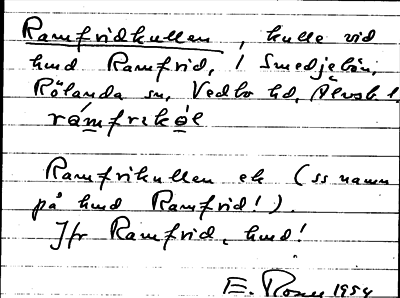 Ramfridkullen, kulle vid
hmd Ramfrid, i Smedjebön,
Rölanda sn, Vedbo hd, Älvsb. l.
ramfrekel
Ramfrikullen ek (ss namn
på hmd Ramfrid!).
Jfr Ramfrid, hmd!
E. Rosen 1954